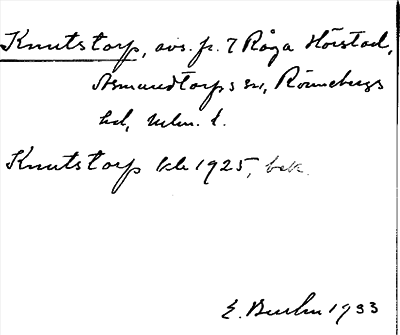 Knutstorp, avs. fr. 7 Råga Hörstad,
Asmundtorps sn, Rönnebergs
hd, Mlm. l.
Knutstorp kk 1925, bek.
E. 1933